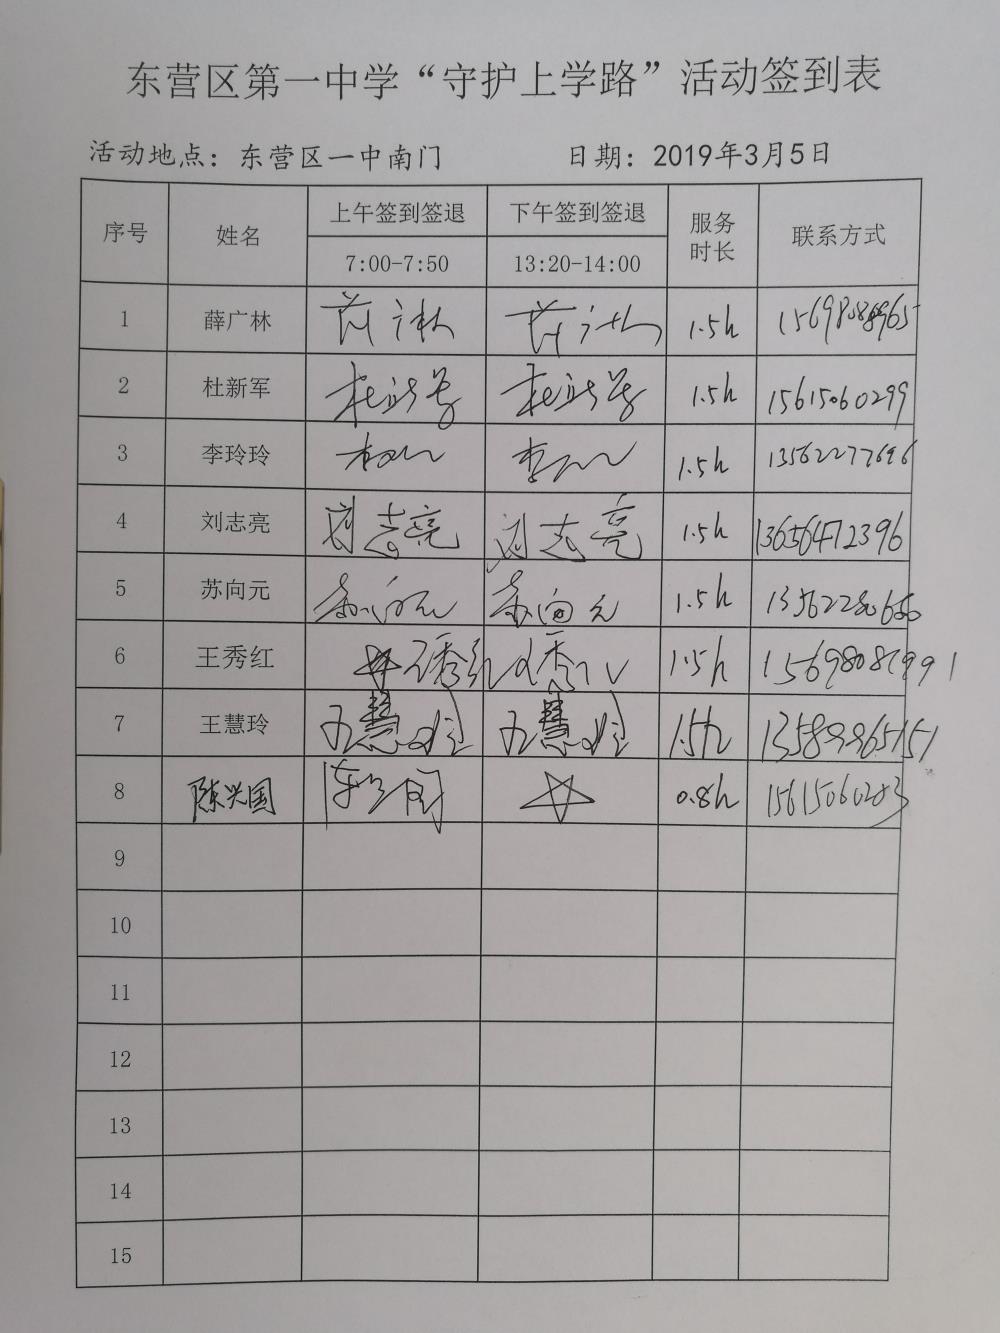 东营区第一中学“守护上学路”活动签到表
活动地点：东营区一中南门 日期：2019年3月5日
序号 姓名 上午签到签退 下午签到签退 服务时长 联系方式
7:00-7:50 13:20-14:00
1 薛广林 1.5h
2 杜新军 杜新军 杜新军 1.5h 15615060299
3 李玲玲 1.5h 13562277696
4 刘志亮 刘志亮 刘志亮 1.5h 13656472396
5 苏向元 苏向元 苏向元 1.5h
6 王秀红 1.5h
7 王慧玲 王慧玲 王慧玲 1.5h 13589965151
8 陈兴国 陈兴国 0.8h 15615060283
9
10
11
12
13
14
15